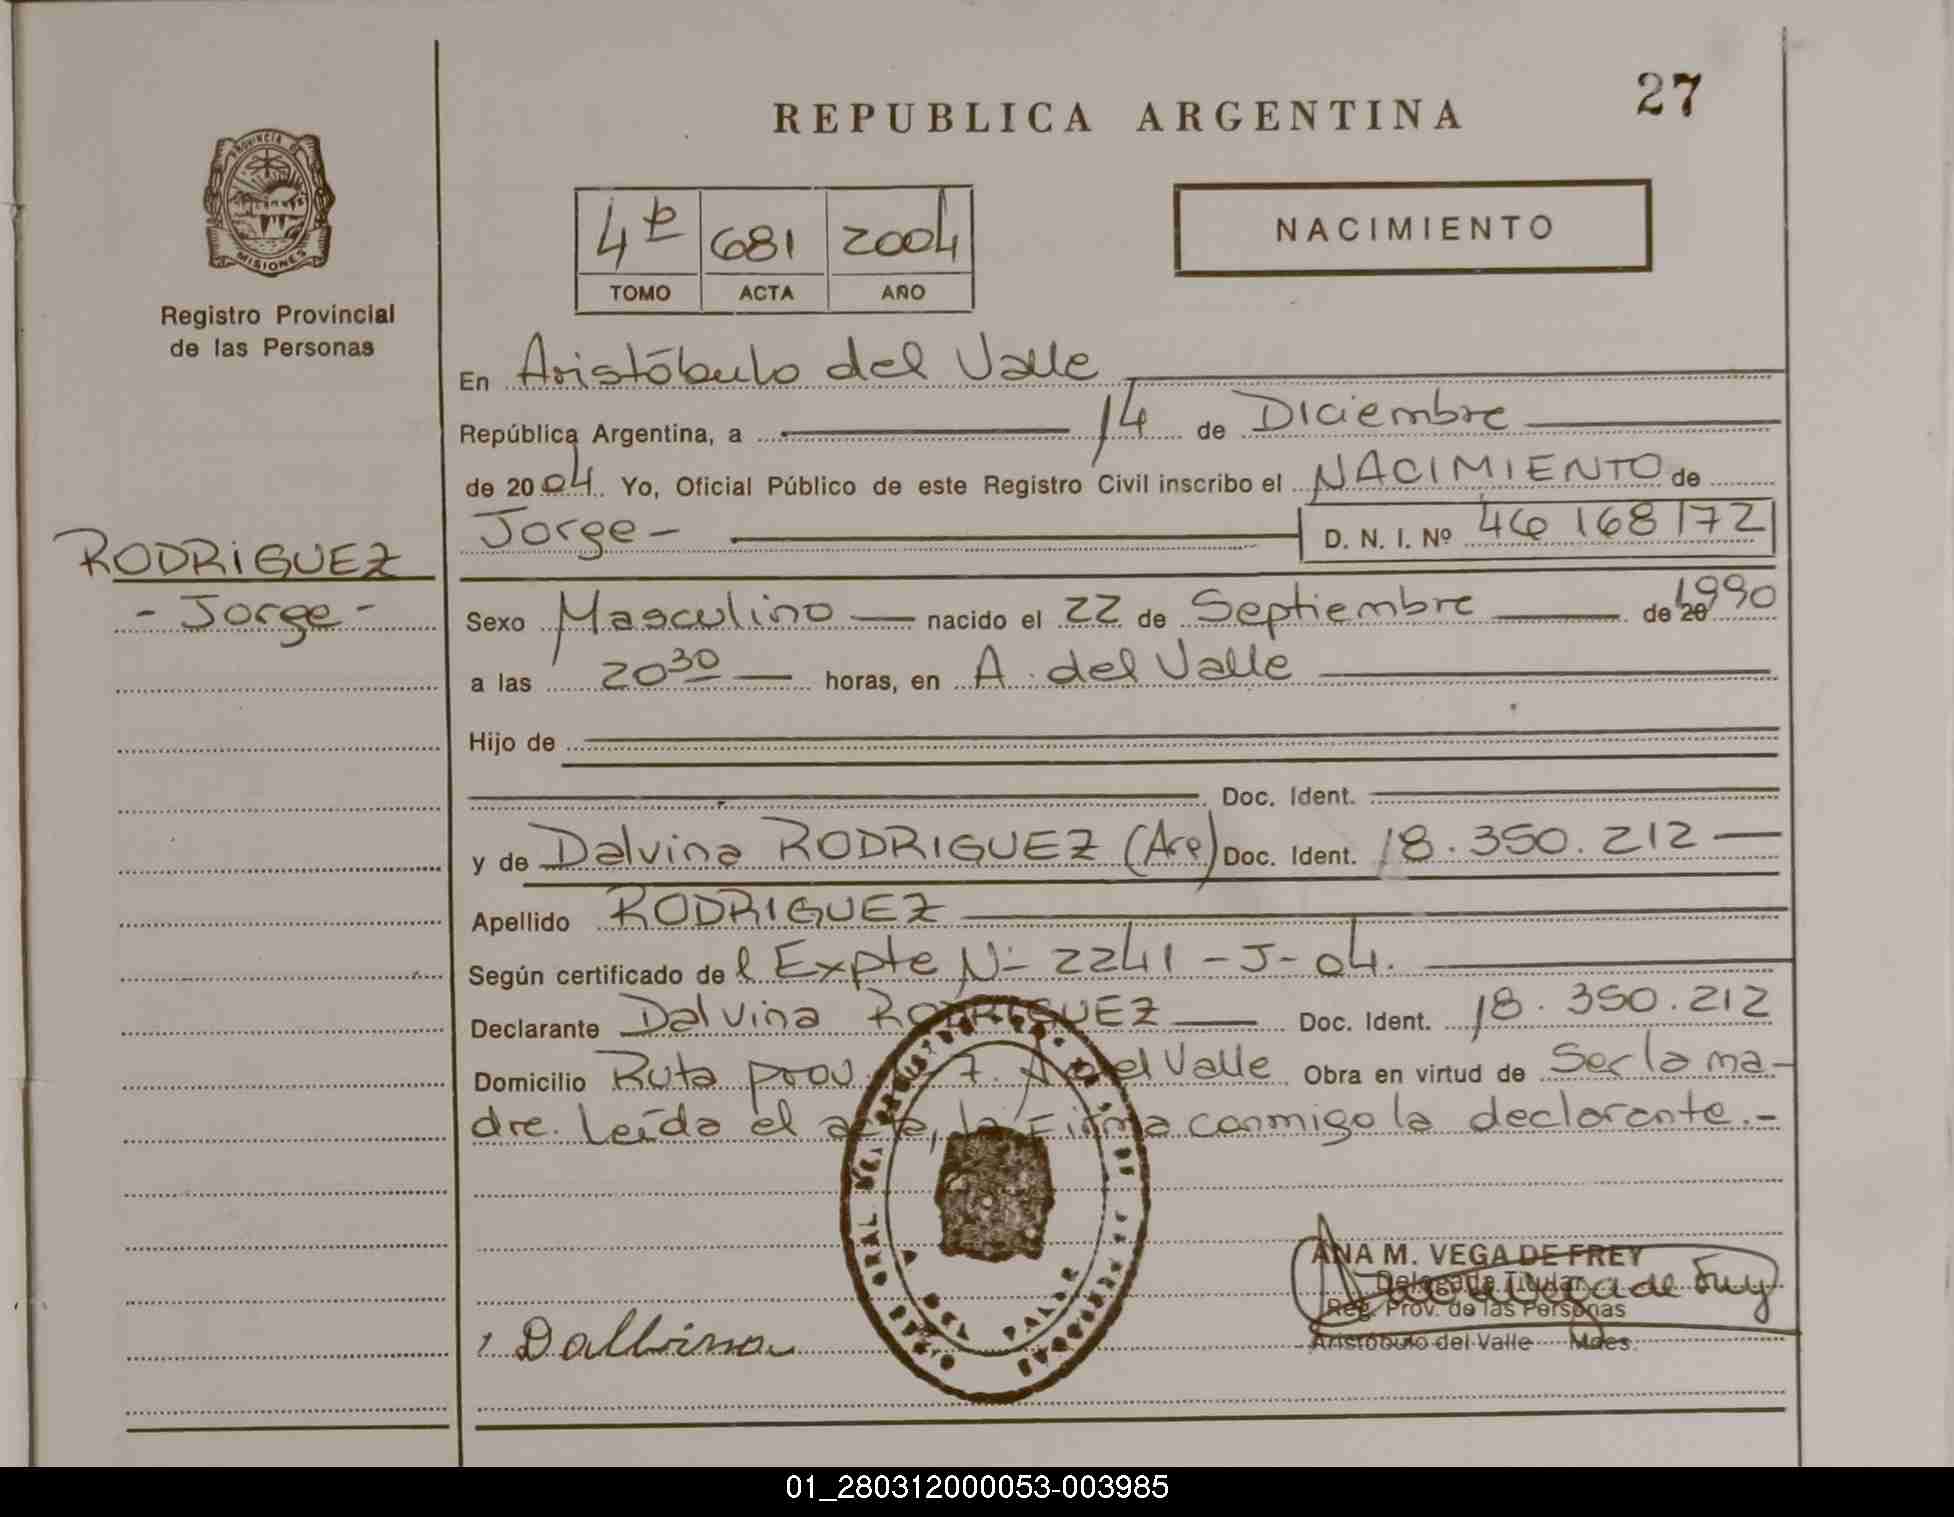 27
REPUBLICA ARGENTINA
PROVINCIA DE
MISIONES
Registro Provincial
de las Personas
4º 681 2004
TOMO ACTA AÑO
NACIMIENTO
En Aristóbulo del Valle
República Argentina, a 14 de Diciembre
de 2004. Yo, Oficial Público de este Registro Civil inscribo el NACIMIENTO de
Jorge- D. N. I. Nº 46 168 172
RODRIGUEZ
- Jorge -
Sexo Masculino nacido el 22 de Septiembre de 20 1990
a las 20 30 horas, en A. del Valle
Hijo de
Doc. Ident.
y de Dalvina RODRIGUEZ (Arg) Doc. Ident. 18.350.212
Apellido RODRIGUEZ
Según certificado del Expte Nº 2241-J-04.
Declarante Dalvina RODRIGUEZ Doc. Ident. 18.350.212
Domicilio Ruta prov. 7. A. del Valle Obra en virtud de Ser la ma-
dre. Leída el acta, la Firma conmigo la declarante.-
ANA M. VEGA DE FREY
Delegada Titular
Reg. Prov. de las Personas
Aristóbulo del Valle Mnes.
Dalbina
01_280312000053-003985